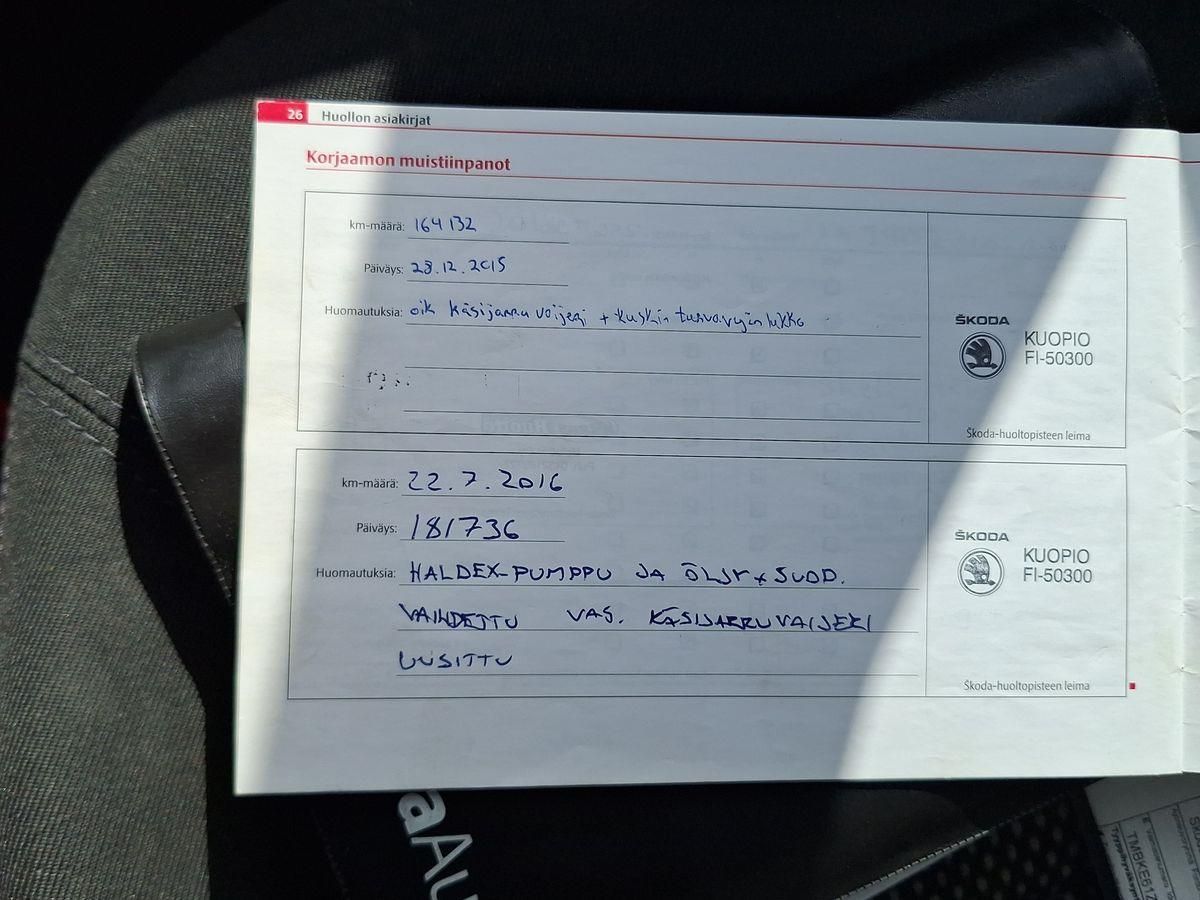 26 Huollon asiakirjat
Korjaamon muistiinpanot
km-määrä: 164 132
Päiväys: 28.12.2015
Huomautuksia: oik käsijarru vaijeri + kuskin turvavyön lukko
ŠKODA
KUOPIO
FI-50300
Škoda-huoltopisteen leima
km-määrä: 22.7.2016
Päiväys: 181736
Huomautuksia: HALDEX-PUMPPU JA ÖLJY + SUOD.
VAIHDETTU VAS. KÄSIJARRUVAIJERI
UUSITTU
ŠKODA
KUOPIO
FI-50300
Škoda-huoltopisteen leima
aAu